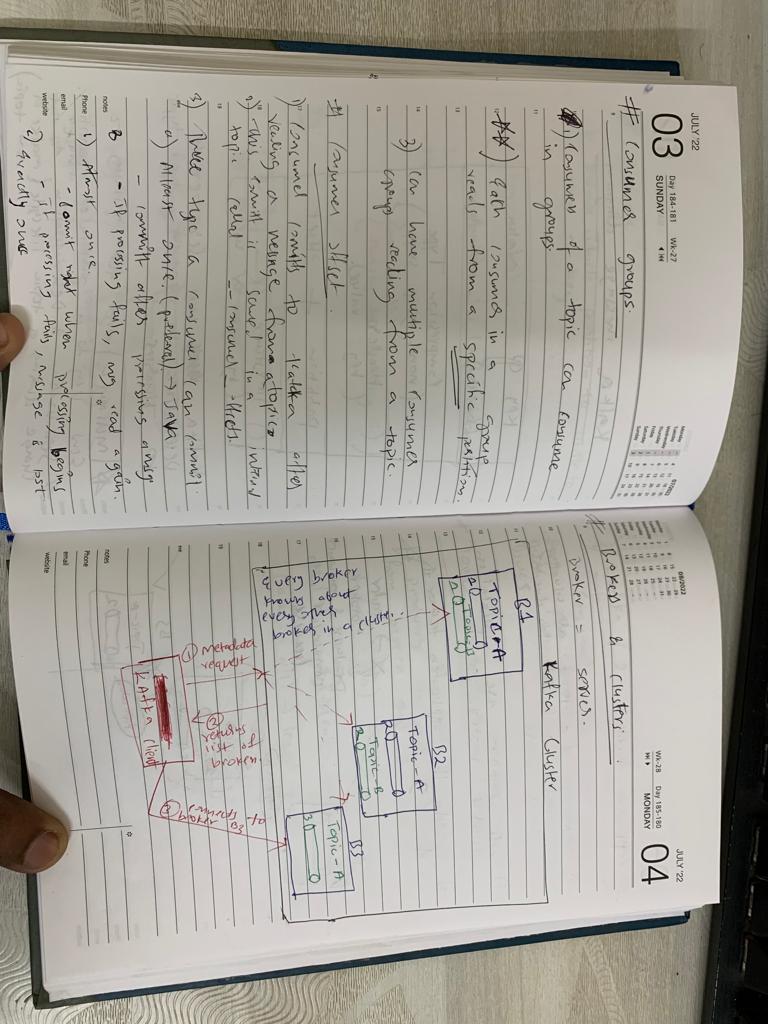 JULY '22
03
Day 184-181
Wk-27
SUNDAY
07/2022
Monday
Tuesday
Wednesday
Thursday
Friday
Saturday
Sunday
# Consumer groups.
1) Consumers of a topic can consume
in groups
) Each consumer in a group
reads from a specific partition.
3) can have multiple consumer
groups reading from a topic.
# Consumer offset
1) Consumer commits to Kafka after
reading a message from a topic
2) This commit is saved in a internal
topic called -- consumer - offsets.
3) Three type a consumer can commit
a) Atleast once. (preferred) → Java
- committ after processing a msg
- If processing fails, msg read again.
B
1) Atmost once.
- commit right when processing begins
- If processing fails, message is lost
c) Exactly once
notes
Phone
email
website
JULY '22
04
Wk-28
Day 185-180
MONDAY
08/2022
# Brokers & clusters.
Broker = server.
Kafka Cluster
B1
Topic-A
2
Topic-B
B2
Topic-A
Topic-B
2
B3
Topic-A
3
Every broker
knows about
every other
broker in a cluster...
① metadata
request
②
returns
list of
③
KAfka client
notes
Phone
email
website